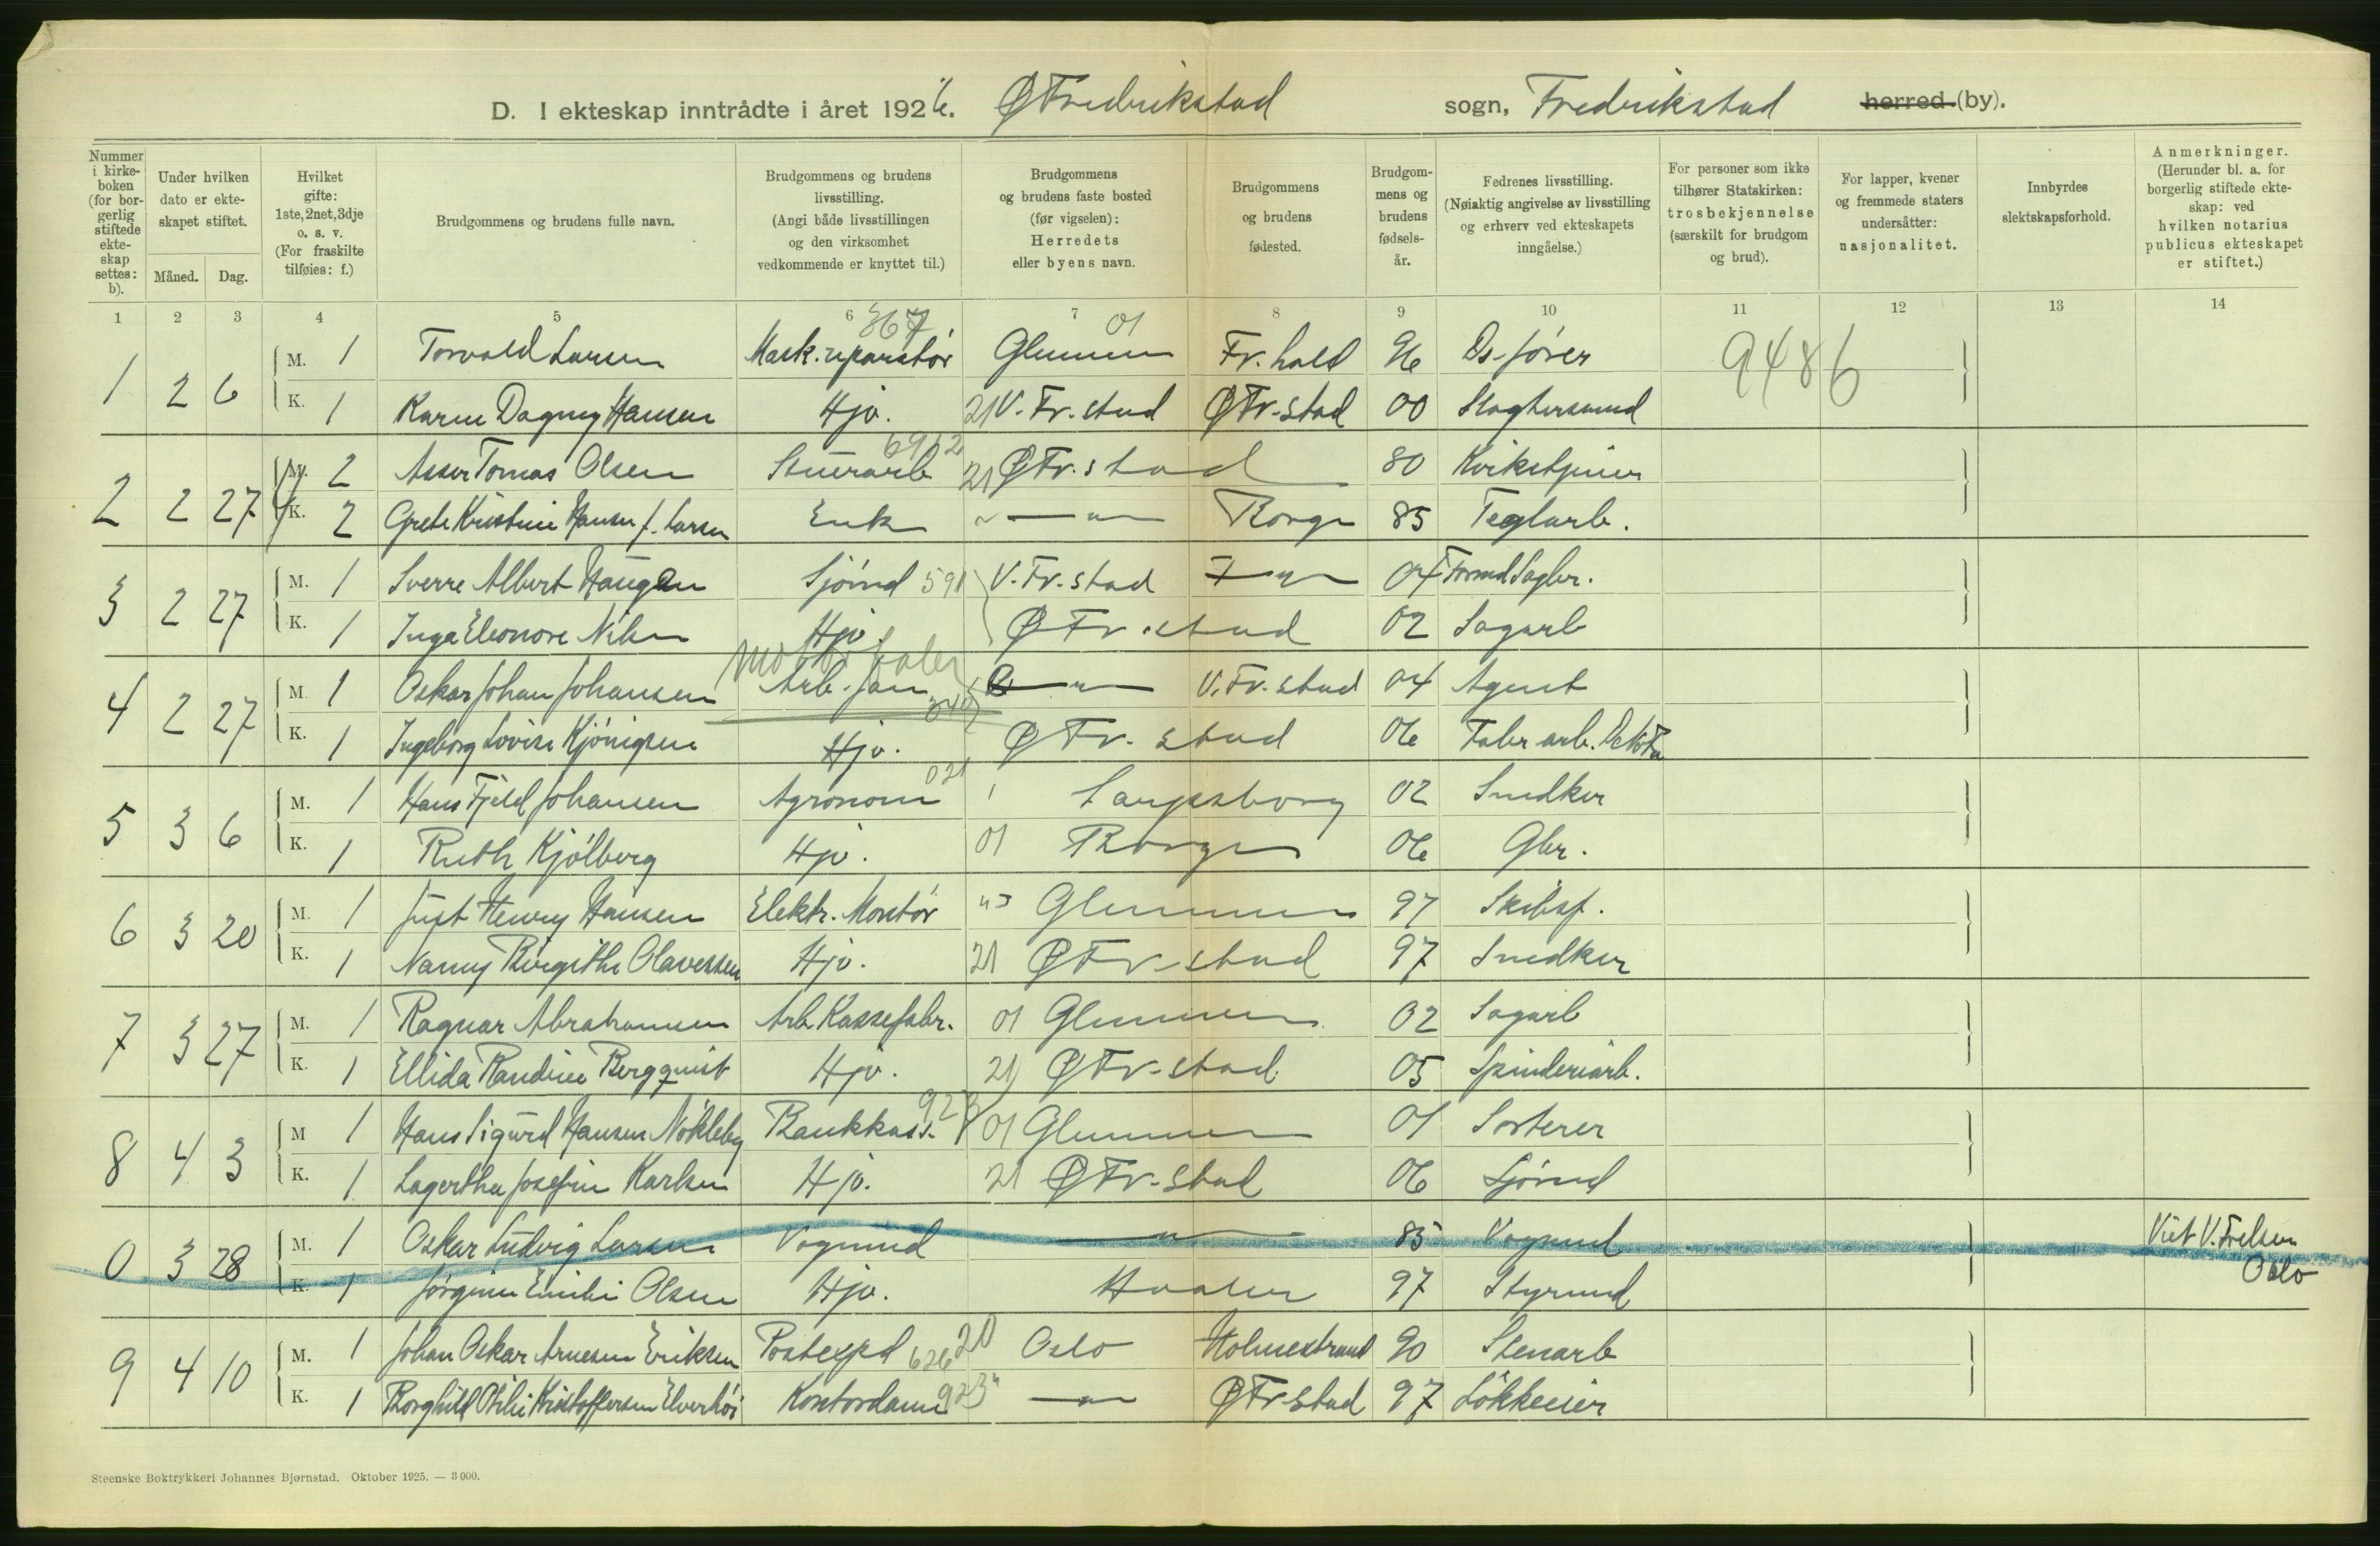 D. I ekteskap inntrådte i året 1926. Ø Fredrikstad sogn, Fredrikstad herred (by).
Nummer i kirkeboken (for borgerlig stiftede ekteskap settes: b).
Under hvilken dato er ekteskapet stiftet.
Måned. Dag.
Hvilket gifte: 1ste, 2net, 3dje o. s. v. (For fraskilte tilføies: f.)
Brudgommens og brudens fulle navn.
Brudgommens og brudens livsstilling. (Angi både livsstillingen og den virksomhet vedkommende er knyttet til.)
Brudgommens og brudens faste bosted (før vigselen): Herredets eller byens navn.
Brudgommens og brudens fødested.
Brudgommens og brudens fødselsår.
Fedrenes livsstilling. (Nøiaktig angivelse av livsstilling og erhverv ved ekteskapets inngåelse.)
For personer som ikke tilhører Statskirken: trosbekjennelse (særskilt for brudgom og brud).
For lapper, kvener og fremmede staters undersåtter: nasjonalitet.
Innbyrdes slektskapsforhold.
Anmerkninger. (Herunder bl. a. for borgerlig stiftede ekteskap: ved hvilken notarius publicus ekteskapet er stiftet.)
1 2 3 4 5 6 7 8 9 10 11 12 13 14
367 01
1 2 6 M. 1 Torvald Larsen Mask.reparatør Glemmen Fr.hald 96 Ds-fører 9486
K. 1 Karen Dagny Hansen Hjv. 21 V. Fr.stad Ø Fr.stad 00 Slagtersvend
6912
2 2 27 M. 2 Asser Tomas Olsen Stuerarb 21 Ø Fr.stad 80
K. 2 Grete Kristine Hansen f. Larsen Enk — " — Borge 85 Teglarb.
3 2 27 M. 1 Sverre Albert Haugen Sjømd 591 V. Fr.stad — " — 04 Formd Sagbr.
K. 1 Inga Eleonore Nilsen Hjv. Ø Fr.stad 02 Sagarb
4 2 27 M. 1 Oskar Johan Johansen Arb. — " — V. Fr.stad 04 Agent
K. 1 Ingeborg Lovise Kjønigsen Hjv. Ø Fr.stad 06 Fabr arb.
021
5 3 6 M. 1 Hans Fjeld Johansen Agronom Sarpsborg 02 Snedker
K. 1 Ruth Kjølberg Hjv. 01 Borge 06 Gbr.
6 3 20 M. 1 Just Henry Hansen Elektr. Montør Glemmen 97 Skibsf.
K. 1 Nanny Birgithe Olavessen Hjv. 21 Ø Fr.stad 97 Snedker
7 3 27 M. 1 Ragnar Abrahamsen Arb. Kassefabr. 01 Glemmen 02 Sagarb
K. 1 Ellida Randine Bergquist Hjv. 21 Ø Fr.stad 05 Spinderiarb.
923
8 4 3 M 1 Hans Sigurd Hansen Nøkleby Bankkass. 01 Glemmen 01 Sorterer
K. 1 Lagertha Josefine Karlsen Hjv. 21 Ø Fr.stad 06 Sjømd
0 3 28 M. 1 Oskar Ludvig Larsen Vognmd — " — 85 Vognmd Viet V. Frelsen
K. 1 Jørgine Emilie Olsen Hjv. Hvaler 97 Styrmd Oslo
9 4 10 M. 1 Johan Oskar Arnesen Eriksen Postexpd 626 20 Oslo Holmestrand 90 Stenarb
K. 1 Borghild Otilie Kristoffersen Elverhøi Kontordame 923 — " — Ø Fr.stad 97 Løkkeeier
Steenske Boktrykkeri Johannes Bjørnstad. Oktober 1925. — 3 000.